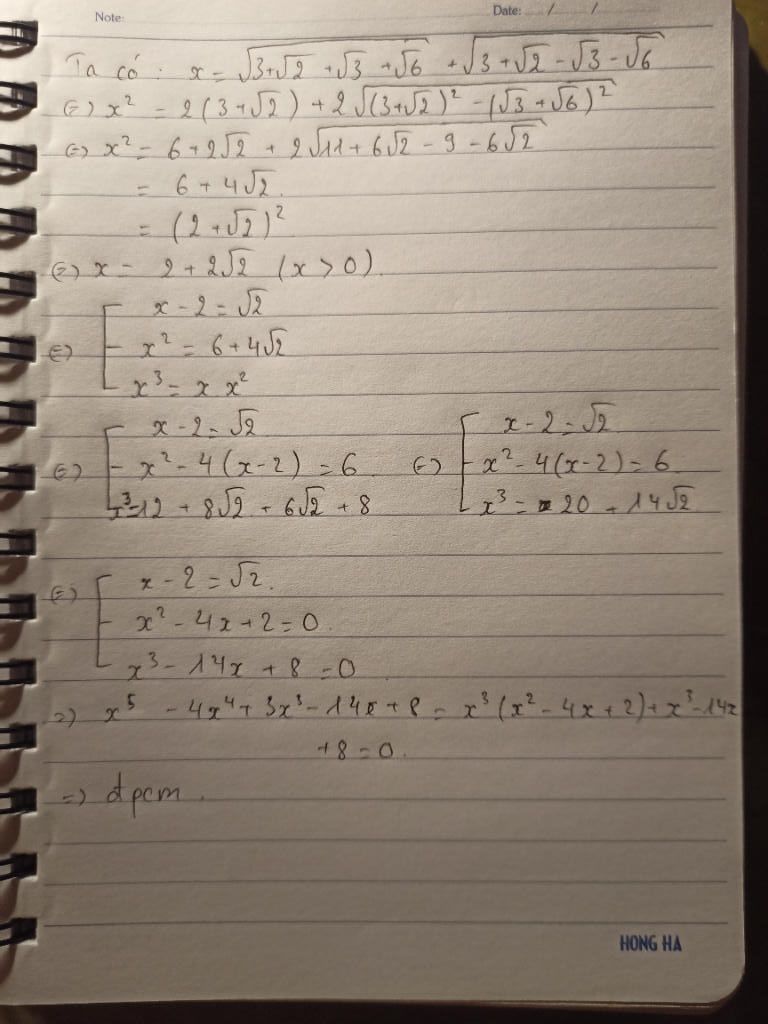 Note: Date: / /
Ta có: x = √(3+√2+√3+√6) + √(3+√2-√3-√6)
(=) x² = 2(3+√2) + 2√((3+√2)² - (√3+√6)²)
(=) x² = 6+2√2 + 2√(11+6√2-9-6√2)
= 6+4√2
= (2+√2)²
(=) x = 2+2√2 (x>0).
(=) [ x-2=√2
x² = 6+4√2
x³ = x x²
(=) [ x-2=√2 (=) [ x-2=√2
x²-4(x-2)=6 x²-4(x-2)=6
x³=12+8√2+6√2+8 x³=20+14√2
(=) [ x-2=√2.
x²-4x+2=0.
x³-14x+8=0
=) x⁵-4x⁴+3x³-14x+8 = x³(x²-4x+2)+x³-14x
+8=0.
=) đpcm.
HONG HA